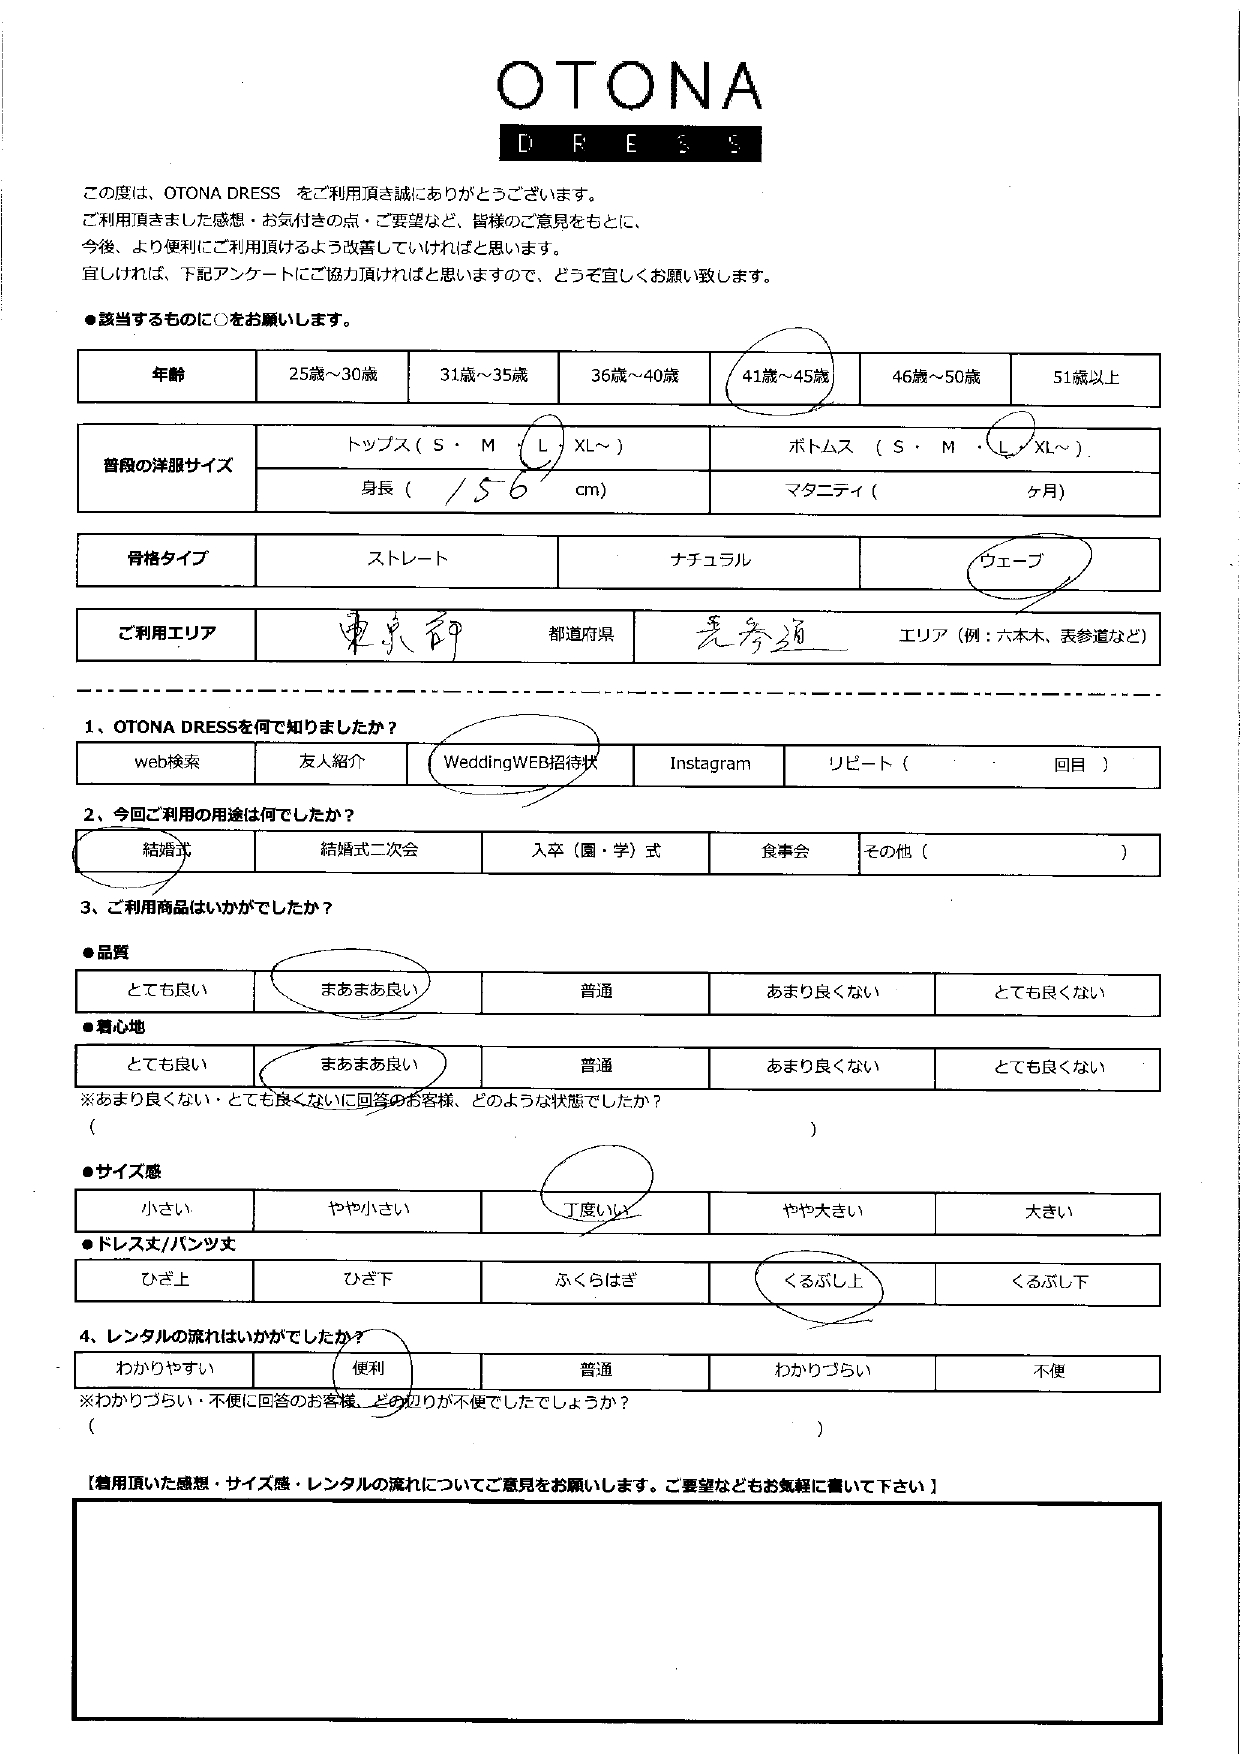 OTONA
DRESS
この度は、OTONA DRESS をご利用頂き誠にありがとうございます。
ご利用頂きました感想・お気付きの点・ご要望など、皆様のご意見をもとに、
今後、より便利にご利用頂けるよう改善していければと思います。
宜しければ、下記アンケートにご協力頂ければと思いますので、どうぞ宜しくお願い致します。
●該当するものに○をお願いします。
年齢 25歳～30歳 31歳～35歳 36歳～40歳 41歳～45歳 46歳～50歳 51歳以上
普段の洋服サイズ トップス ( S ・ M ・ L ・ XL～ ) ボトムス ( S ・ M ・ L ・ XL～ )
身長 ( 156 cm) マタニティ ( ヶ月)
骨格タイプ ストレート ナチュラル ウェーブ
ご利用エリア 東京都 都道府県 表参道 エリア（例：六本木、表参道など）
1、OTONA DRESSを何で知りましたか？
web検索 友人紹介 WeddingWEB招待状 Instagram リピート ( 回目 )
2、今回ご利用の用途は何でしたか？
結婚式 結婚式二次会 入卒（園・学）式 食事会 その他 ( )
3、ご利用商品はいかがでしたか？
●品質
とても良い まあまあ良い 普通 あまり良くない とても良くない
●着心地
とても良い まあまあ良い 普通 あまり良くない とても良くない
※あまり良くない・とても良くないに回答のお客様、どのような状態でしたか？
( )
●サイズ感
小さい やや小さい 丁度いい やや大きい 大きい
●ドレス丈/パンツ丈
ひざ上 ひざ下 ふくらはぎ くるぶし上 くるぶし下
4、レンタルの流れはいかがでしたか？
わかりやすい 便利 普通 わかりづらい 不便
※わかりづらい・不便に回答のお客様、どの辺りが不便でしたでしょうか？
( )
【着用頂いた感想・サイズ感・レンタルの流れについてご意見をお願いします。ご要望などもお気軽に書いて下さい】